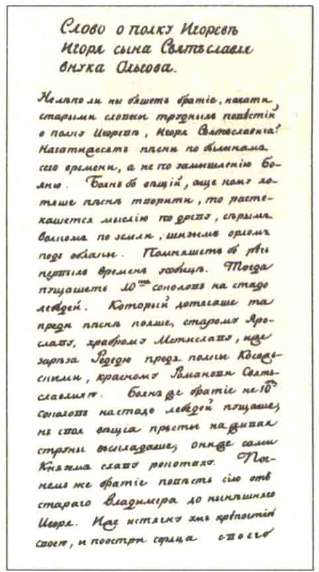 Слово о полку Игоревѣ
Игоря сына Святъславля
внука Ольгова.
Нелѣпо ли ны бяшетъ братіе, начати
старыми словесы трудныхъ повѣстій
о полку Игоревѣ, Игоря Святъславича?
Начатижесятъ пѣсни по былинамъ
сего времени, а не по замышленію Бо-
яню. Боянъ бо вѣщій, аще кому хо-
тяше пѣснь творити, то расте-
кашется мыслію по древу, сѣрымъ
волкомъ по земли, шизымъ орломъ
подъ облакы. Помняшеть бо рѣчь
первыхъ временъ усобицѣ. Тогда
пущашеть 10 соколовь на стадо
лебедѣй. Который дотечаше та
преди пѣснь пояше, старому Яро-
славу, храброму Мстиславу, иже
зарѣза Редедю предъ полкы Касожь-
скыми, красному Романови Свять-
славличю. Боянъ же братіе не 10
соколовь на стадо лебедѣй пущаше,
нъ своя вѣщіа пръсты на живая
струны въскладаше, они же сами
Княземъ славу рокотаху. Поч-
немъ же братіе повѣсть сію отъ
стараго Владимера до нынѣшняго
Игоря. Иже истягну умь крѣпостію
своею, и поостри сердца своего